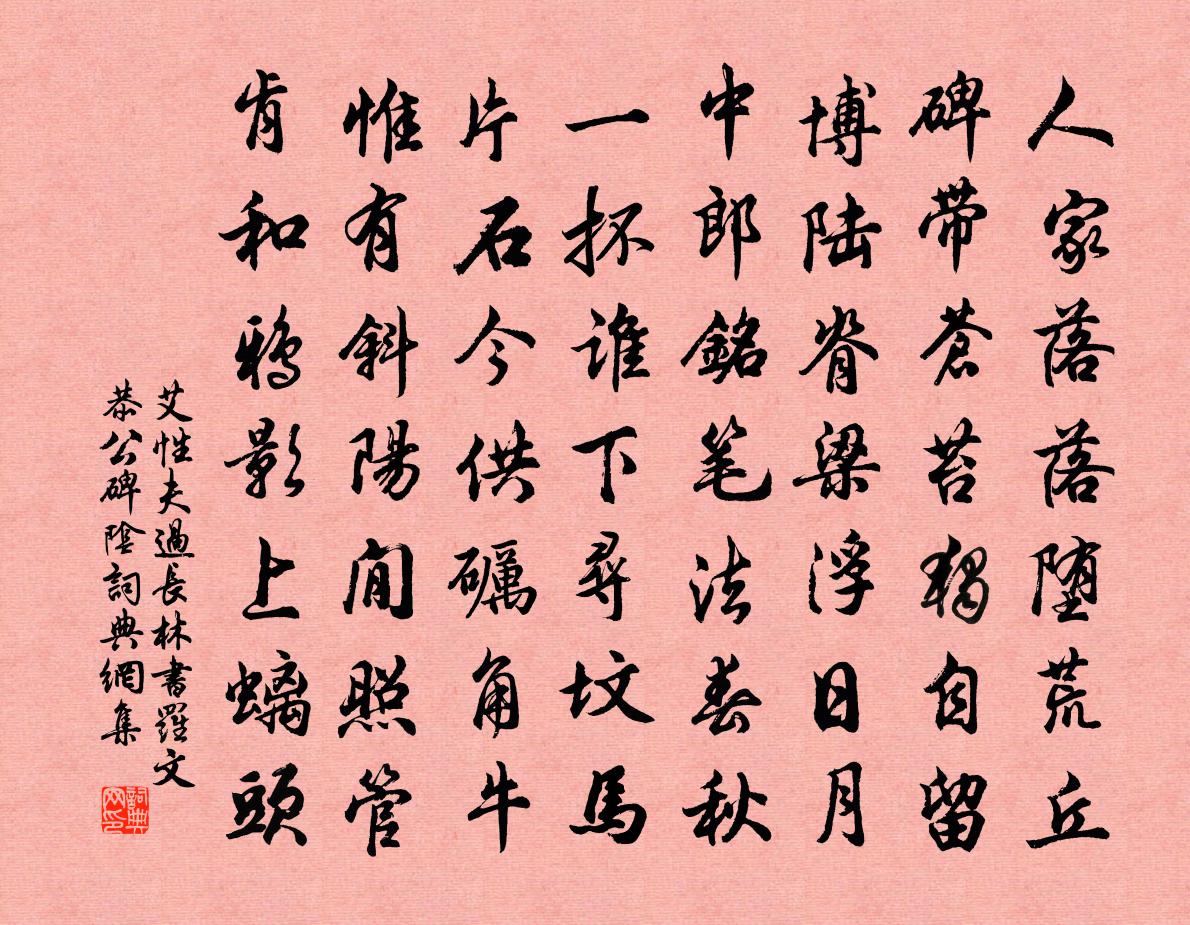 人家落落堕荒丘
碑带苍苔独自留
博陆脊梁浮日月
中郎銘笔法春秋
一抔谁下尋坟馬
片石今供礪角牛
惟有斜陽閒照管
肯和鸦影上螭頭
艾性夫過長林書羅文
恭公碑陰詞典網集
詞典网印